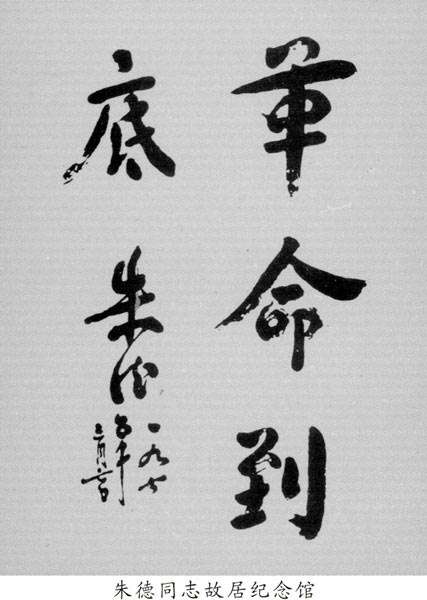 革命到
底
朱德
一九七
五年
三月六日
朱德同志故居纪念馆